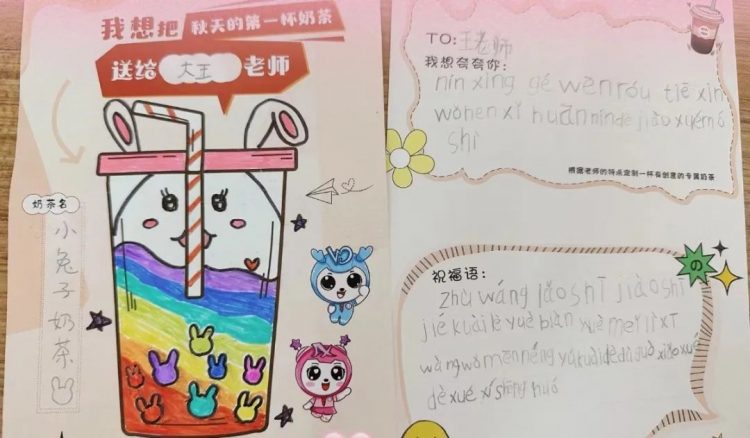 我想把 秋天的第一杯奶茶
送给 大王 老师
奶茶名
小兔子奶茶
TO: 王老师
我想夸夸你:
nín xìng gé wēn róu tiē xīn
wǒ hěn xǐ huān nín de jiāo xué mó
shì
根据老师的特点定制一杯有创意的专属奶茶
祝福语:
zhù wáng lǎo shī jiào shī
jié kuài lè yuè biàn yuè měi lì xī
wàng wǒ men néng yú kuài dè dù guò xiǎo xué
dè xué xí shēng huó